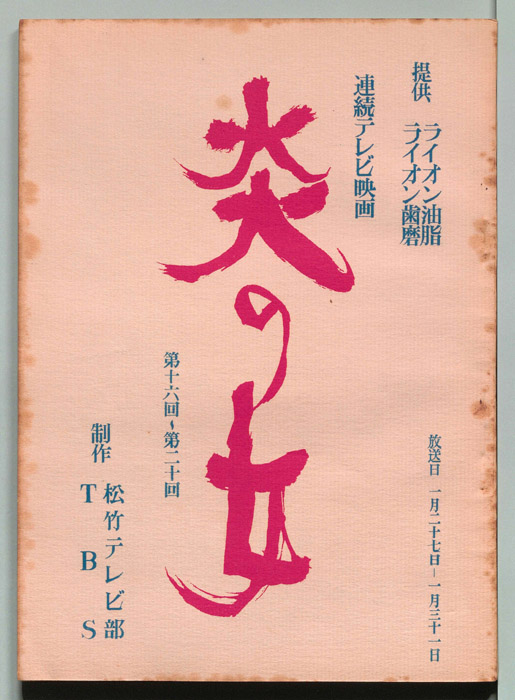 提供、ライオン油脂
ライオン歯磨
連続テレビ映画
炎の女
第十六回〜第二十回
放送日 一月二十七日―一月三十一日
制作 松竹テレビ部
TBS